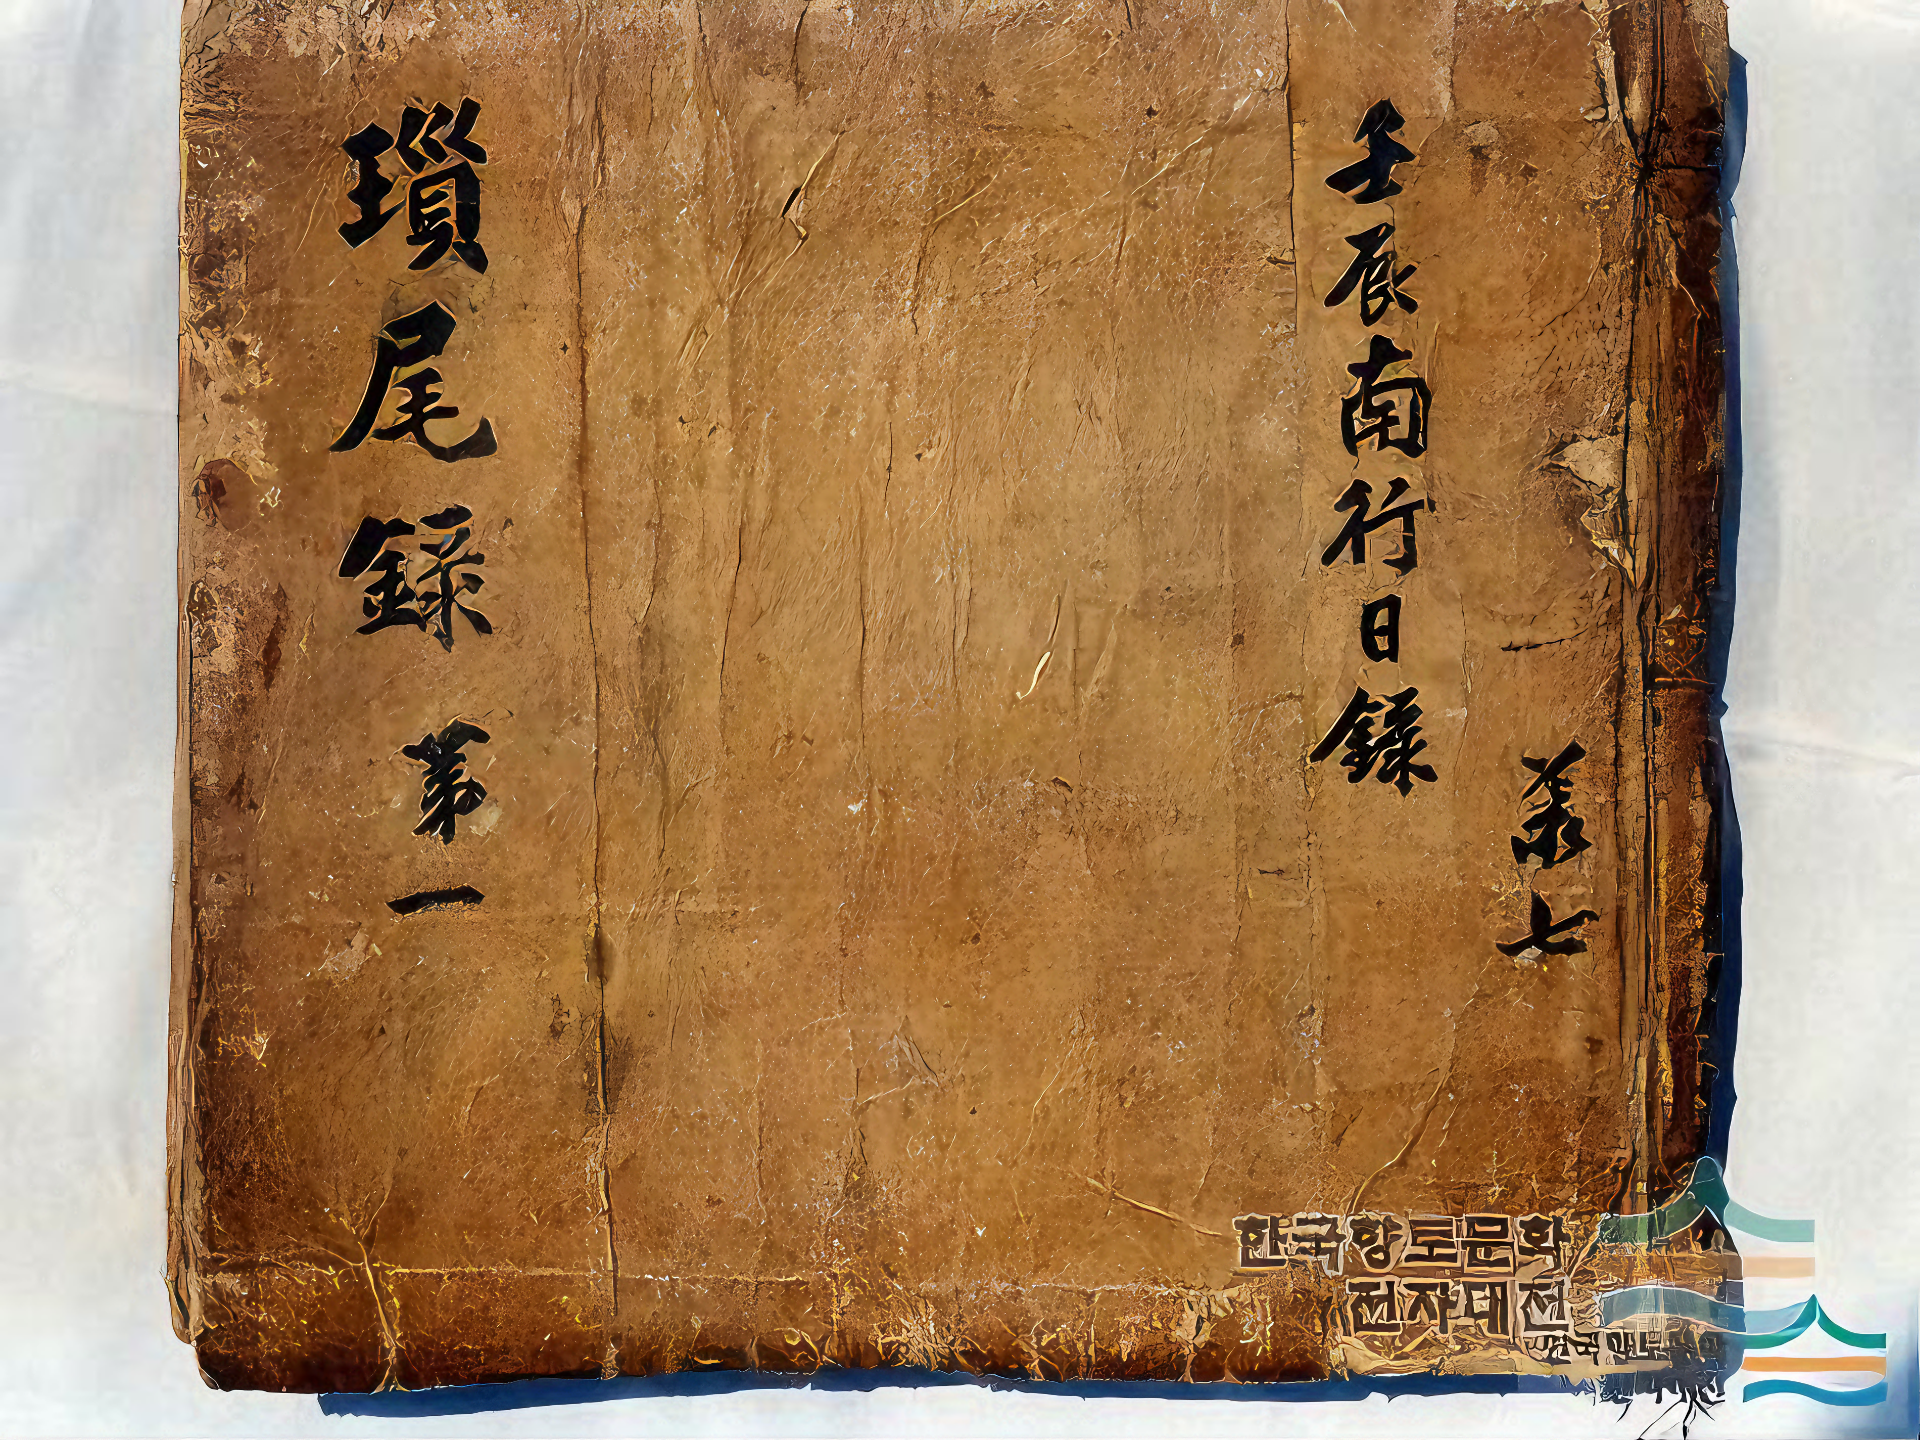 共七
壬辰南行日錄
瑣尾錄 第一
한국향토문화
전자대전